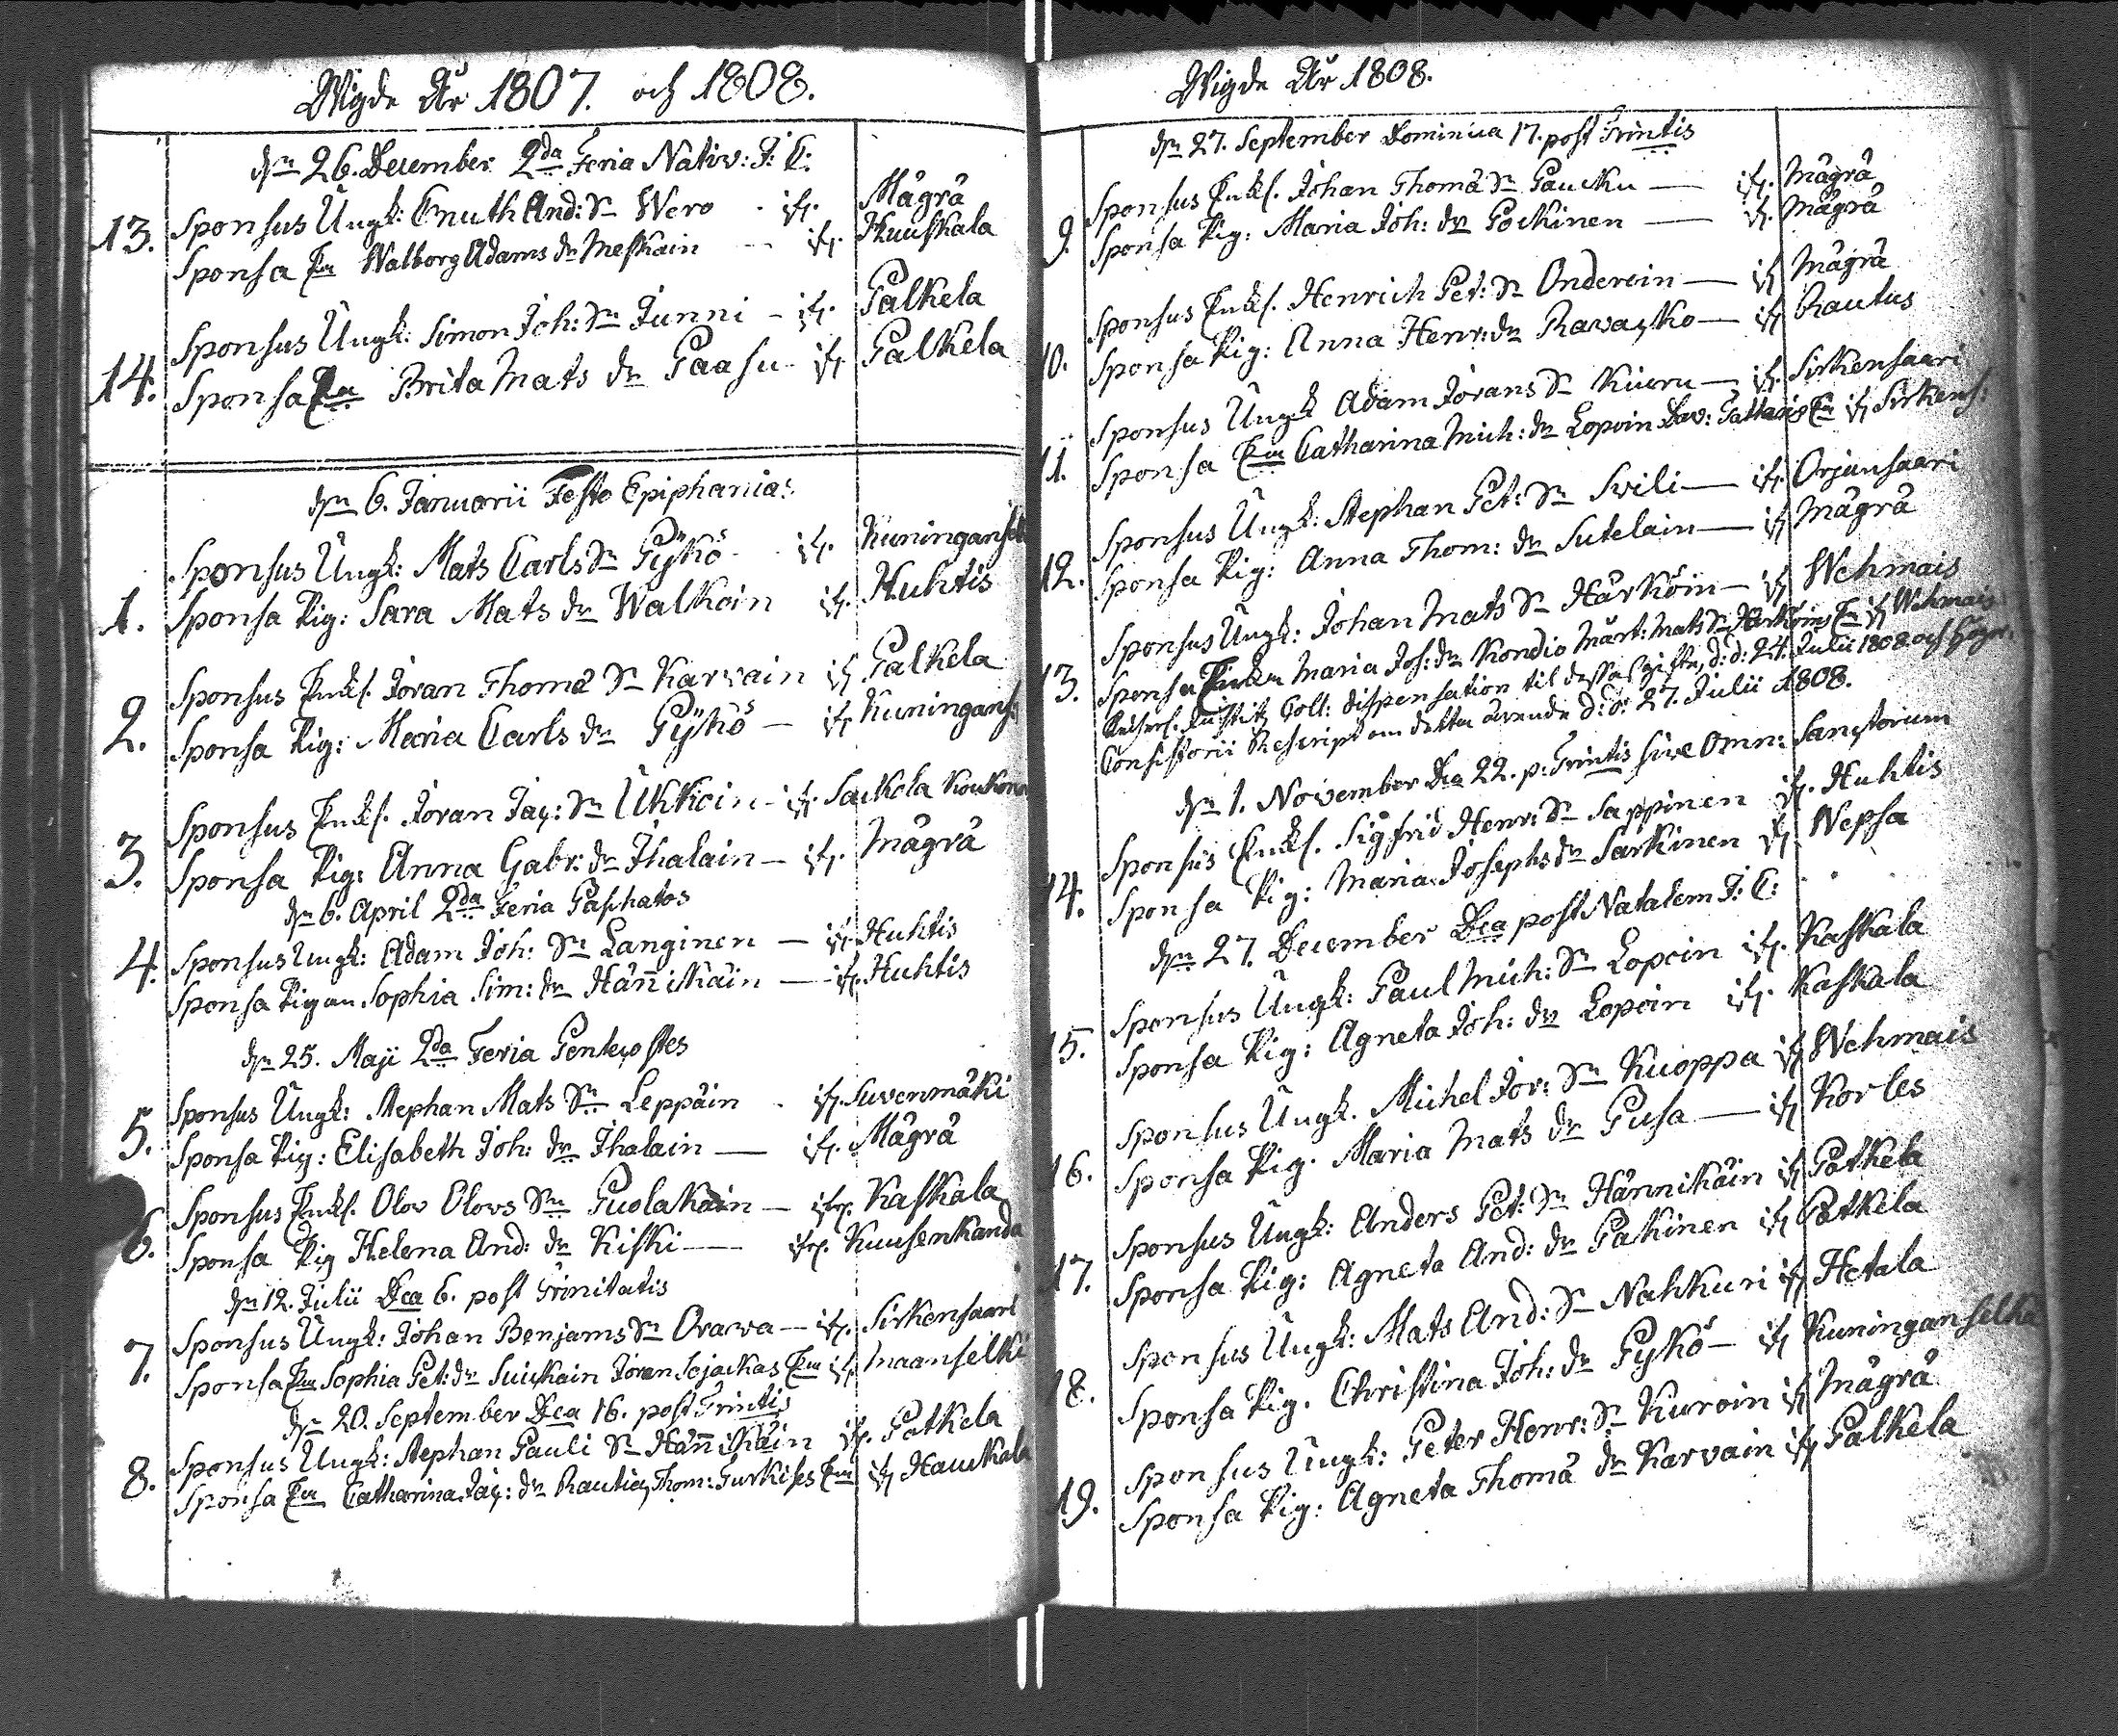 Wigde År 1807. och 1808.
dn 26. December 2da Feria Nativ: J: C:
13. Sponsus Ungk: Cnuth And: Sn Wero ifr. Mägrä
Sponsa Ea Walborg Adams dr Meskain ifr. Kuuskala
Sponsus Ungk: Simon Joh: Sn Junni - ifr. Palkela
14. Sponsa Ea Brita Mats dr Paasu - ifr Palkela
dn 6. Januarii Festo Epiphanias:
Sponsus Ungk: Mats Carls Sn Pÿkö ifr.
1. Sponsa Pig: Sara Mats dr Walkoin ifr. Huhtis
Sponsus Enkl. Jöran Thomæ Sn Karvain ifr Palkela
2. Sponsa Pig: Maria Carls dr Pÿkö - ifr Kuningans:
Sponsus Enkl. Jöran Jac: Sn Ukkoin - ifr. Saukola
3. Sponsa Pig: Anna Gabr: dr Ihalain - ifr. Mägrä
dn 6. April 2da Feria Paschatos
4. Sponsus Ungk: Adam Joh: Sn Langinen - ifr. Huhtis
Sponsa Pigan Sophia Sim: dr Hän̄ikäin - ifr. Huhtis
dn 25. Maji 2da Feria Pentecostes
Sponsus Ungk: Stephan Mats Sn Leppäin ifr. Suvenmäki
5. Sponsa Pig: Elisabeth Joh: dr Ihalain - ifr. Mägrä
Sponsus Enkl. Olov Olovs Sn Puolakain - ifr. Kaskala
6. Sponsa Pig Helena And: dr Kiski - ifr. Kuusenkanda
dn 12. Julii Dca 6. post Trinitatis
Sponsus Ungk: Johan Benjams Sn Orawa - ifr. Sirkensaari
7. Sponsa Ea Sophia Pet: dr Suickain Jöran Ea ifr Maanselki
dn 20. September Dca 16. post Trinitis
Sponsus Ungk: Stephan Pauli Sn Hän̄ikäin ifr. Potkela
8. Sponsa Ea Catharina Jac: dr Rautia, Thom: Turkises Ea ifr Haukala
Wigde År 1808.
dn 27. September Dominica 17. post Trinitis
Sponsus Enkl. Johan Thomæ Sn Paucku - ifr. Mägrä
9. Sponsa Pig: Maria Joh: dr Pockinen - ifr. Mägrä
Sponsus Enkl. Henrich Pet: Sn Onderoin - ifr Mägrä
10. Sponsa Pig: Anna Henr: dr Ravasko - ifr Rautus
Sponsus Ungk Adam Jörans Sn Kiuru - ifr. Sirkensaari
11. Sponsa Ea Catharina Mich: dr Lopoin Dav: Ea ifr Sirkens:
Sponsus Ungk: Stephan Pet: Sn Svili - ifr. Orjansaari
12. Sponsa Pig: Anna Thom: dr Sutelain - ifr Mägrä
Sponsus Ungk: Johan Mats Sn Härköin - ifr Wehmais
13. Sponsa Enkan Maria Joh: dr Kondio Mårt: Mats Sn Härköins Ea ifr Wehmais
Keiserl. Justitz Coll: dispensation til dessas gifte, d: d: 24. Julii 1808 och
Consistorii Rescript om detta ärende d: d: 27. Julii 1808.
dn 1. November Dca 22. p: Trinitis sive Omn: Sanctorum
Sponsus Enkl. Sigfrid Henr: Sn Sappinen ifr. Huhtis
14. Sponsa Pig: Maria Josephs dr Sarkinen ifr. Wepsa
dn 27. December Dca post Natalem J: C:
Sponsus Ungk: Paul Mich: Sn Lopoin ifr. Kaskala
15. Sponsa Pig: Agneta Joh: dr Lopoin ifr. Kaskala
Sponsus Ungk. Michel Jör: Sn Kuoppa ifr Wehmais
16. Sponsa Pig. Maria Mats dr Pusa - ifr Korles
Sponsus Ungk: Anders Pet: Sn Hännikäin ifr Potkela
17. Sponsa Pig: Agneta And: dr Pakinen ifr Potkela
Sponsus Ungk: Mats And: Sn Nahkuri ifr Hetala
18. Sponsa Pig. Christina Joh: dr Pÿkö - ifr Kuninganselkä
Sponsus Ungk: Peter Henr: Sn Kuroin ifr Mägrä
19. Sponsa Pig: Agneta Thomæ dr Karvain ifr Palkela